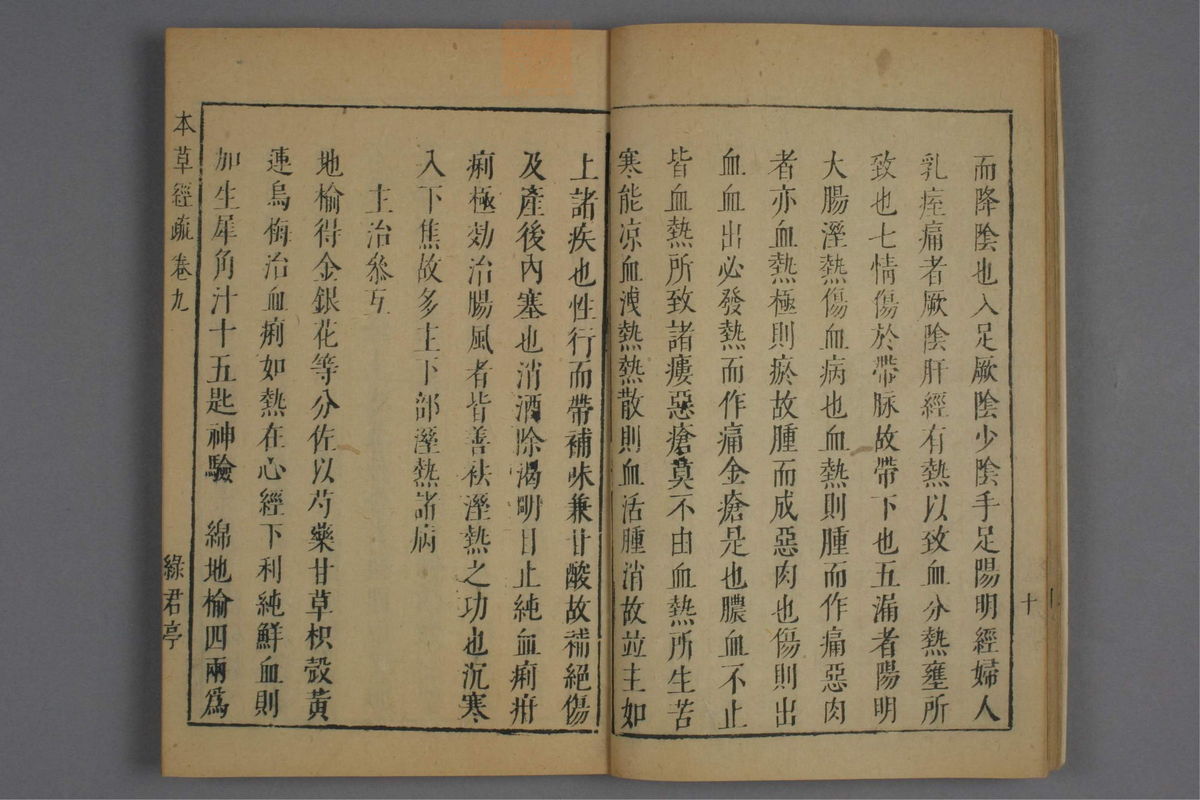 而降陰也入足厥陰少陰手足陽明經婦人
乳痓痛者厥陰肝經有熱以致血分熱壅所
致也七情傷於帶脉故帶下也五漏者陽明
大腸溼熱傷血病也血熱則腫而作痛惡肉
者亦血熱極則瘀故腫而成惡肉也傷則出
血血出必發熱而作痛金瘡是也膿血不止
皆血熱所致諸瘻惡瘡莫不由血熱所生苦
寒能凉血洩熱熱散則血活腫消故竝主如
十
上諸疾也性行而帶補味兼甘酸故補絕傷
及產後內塞也消酒除渴明目止純血痢疳
痢極効治腸風者皆善袪溼熱之功也沉寒
入下焦故多主下部溼熱諸病
主治參互
地榆得金銀花等分佐以芍藥甘草枳殼黃
連烏梅治血痢如熱在心經下利純鮮血則
加生犀角汁十五匙神驗　綿地榆四兩爲
本草經疏卷九
綠君亭